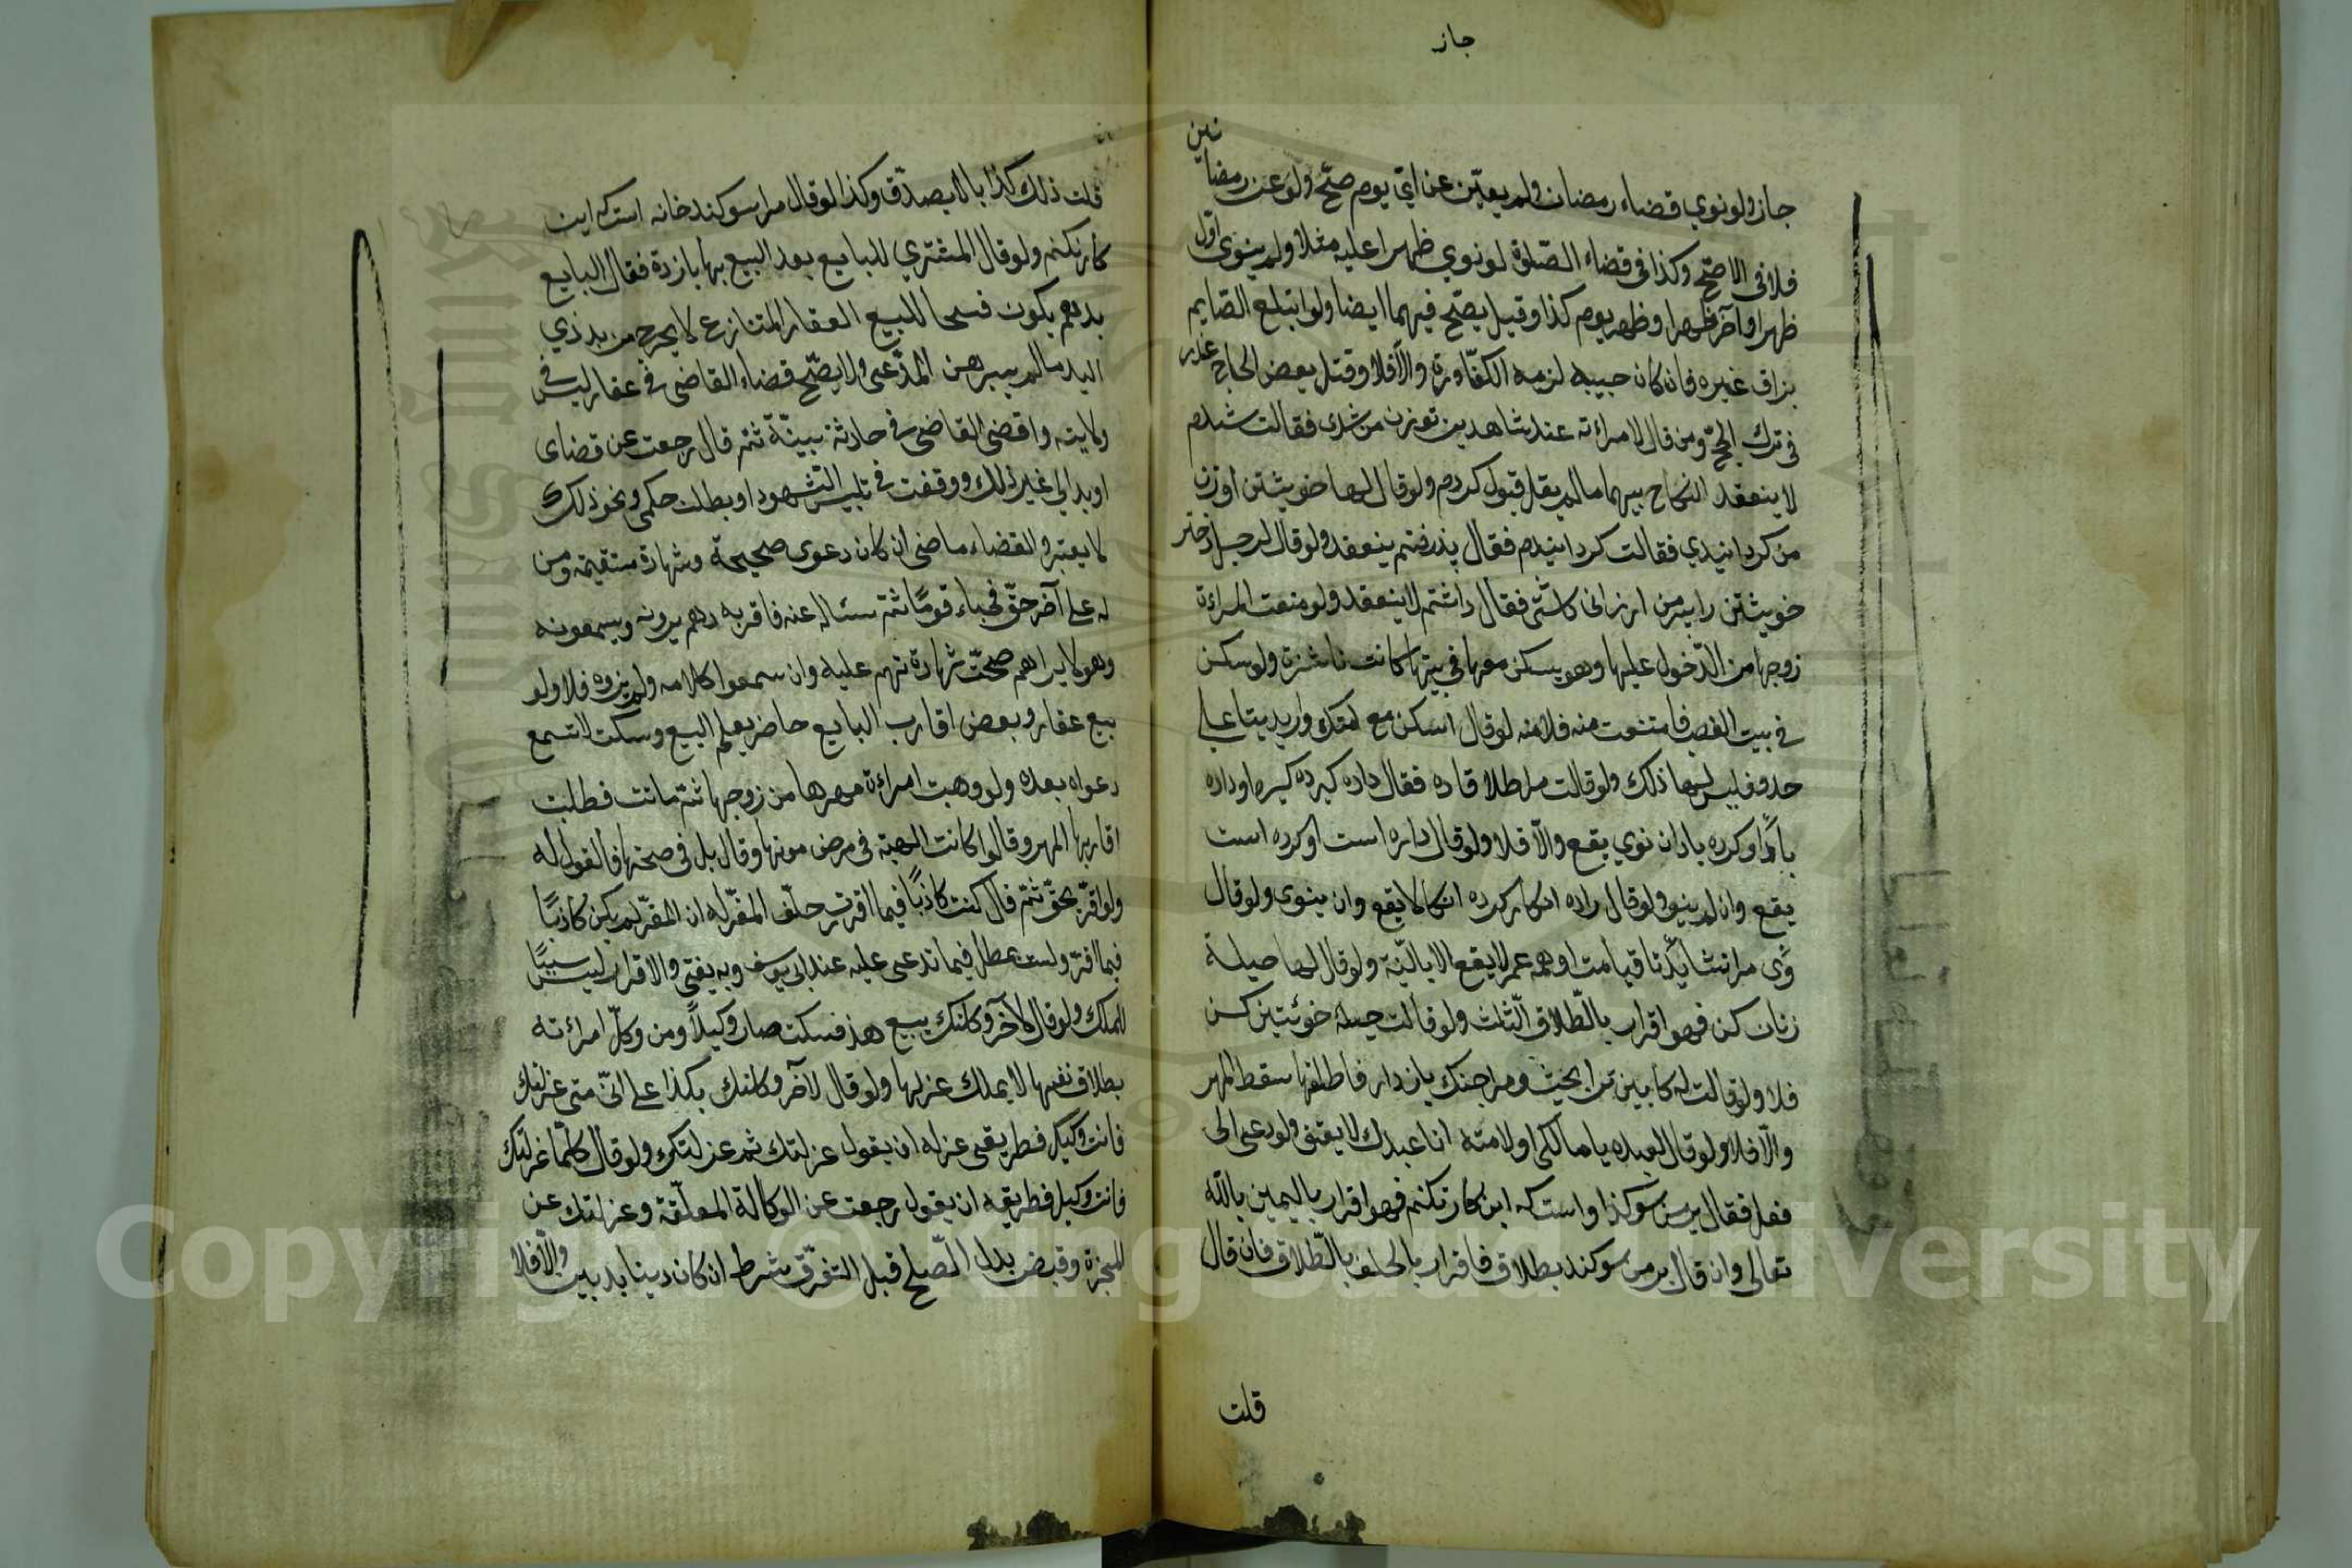 جاز
جاز ولو نوي قضاء رمضان ولم يعيّن عن ايّ يوم صحّ ولو عن رمضانين
فلا في الاصّح وكذا في قضاء الصّلوة لو نوي ظهرا عليه مثلا ولم ينوى اوّل
ظهر او آخر ظهر او ظهر يوم كذا وقيل يصّح فيهما ايضا ولو ابتلع الصّايم
بزاق غيره فان كان حبيبه لزمه الكفّاورة والّا فلا وقتل بعض الحاج عذر
في ترك الحجّ ومن قال لامرأته عند شاهدين تو زن من شدى فقالت شدم
لا ينعقد النكاح بينهما ما لم يقل قبول كردم ولو قال لها خويشتن او زن
من كردانيدي فقالت كردانيدم فقال پذرفتم ينعقد ولو قال لرجل دختر
خويشتن را بپسر من ارزانى كاشتى فقال داشتم لا ينعقد ولو منعت المراءة
زوجها من الدّخول عليها وهو يسكن معها في بيتها كانت ناشزة ولو سكن
في بيت الغصب فامتنعت منه فلا منه لو قال اسكن مع امتك واريد بيتا على
حدة فليس لها ذلك ولو قالت مرا طلاق ده فقال داده كير ده كير او داده
باد او كرده باد ان نوي يقع والّا فلا ولو قال داده است او كرده است
يقع وان لم ينو ولو قال داده انكار كرده انكار لا يقع وان ينوى ولو قال
وى مرا نشايد تا قيامت او همه عمر لا يقع الا بالنّية ولو قال لها حيلة
زنان كن فهو اقرار بالطّلاق الثلث ولو قالت حيلهٔ خويشتن كن
فلا ولو قالت له كابين ترا بخشيدم مرا چنك باز دار فاطلقها سقط المهر
والّا فلا ولو قال لعبده يا مالكى او لامته انا عبدك لا يعتق ولو دعى الى
فعل فقال بر من سوكند است كه اين كار نكنم فهو اقرار باليمين بالله
تعالى وان قال بر من سوكند بطلاق فاقرار بالحلف بالطّلاق فان قال
قلت
قلت ذلك كذبا لا يصدّق وكذا لو قال مرا سوكند خانه است كه اين
كار نكنم ولو قال المشتري للبايع بعد البيع بها باز ده فقال البايع
بدهم يكون فسخا للبيع العقار المتنازع لا يخرج من يد ذي
اليد ما لم يبرهن المدّعى ولا يصّح قضاء القاضى في عقار ليس في
ولايته واقضى القاضى في حادثة ببينّة ثمّ قال رجعت عن قضاى
او بدا لي غير ذلك ووقفت في تلبيس الشهود او بطلت حكمى ونحو ذلك
لا يعتبر والقضاء ماضى ان كان دعوى صحيحة وشهادة مستقيمة ومن
له على آخر حقّ فخباء قومًا ثمّ سئاله عنه فاقر به وهم يرونه ويسمعونه
وهو لا يراهم صحّت شهادتهم عليه وان سمعوا كلامه ولم يروه فلا ولو
بيع عقار وبعض اقارب البايع حاضر يعلم البيع وسكت لا تسمع
دعواه بعده ولو وهبت امراءة مهرها من زوجها ثمّ ماتت فطلبت
اقاربها المهر وقالوا كانت الهبة في مرض موتها وقال بل في صحتها فالقول له
ولو اقرّ بحقّ ثمّ قال كنت كاذبًا فيما اقررت حلّف المقرّ له ان المقرّ لم يكن كاذبًا
فيما اقرّ ولست بمطل فيما تدعى عليه عند ابى يوسف وبه يفتى والاقرار ليس سببًا
للملك ولو قال لآخر وكلتك ببيع هذ فسكت صار وكيلًا ومن وكلّ امراءته
بطلاق نفسها لا يملك عزلها ولو قال لآخر وكلتك بكذا على انّى متى عزلتك
فانت وكيل فطريق عزله ان يقول عزلتك ثم عزلتك ولو قال كلّما عزلتك
فانت وكيل فطريقه ان يقول رجعت عن الوكالة المعلّقة وعزلتك عن
المنجزة وقبض بدل الصّلح قبل التفرّق شرط ان كان دينا بدين والّا فلا